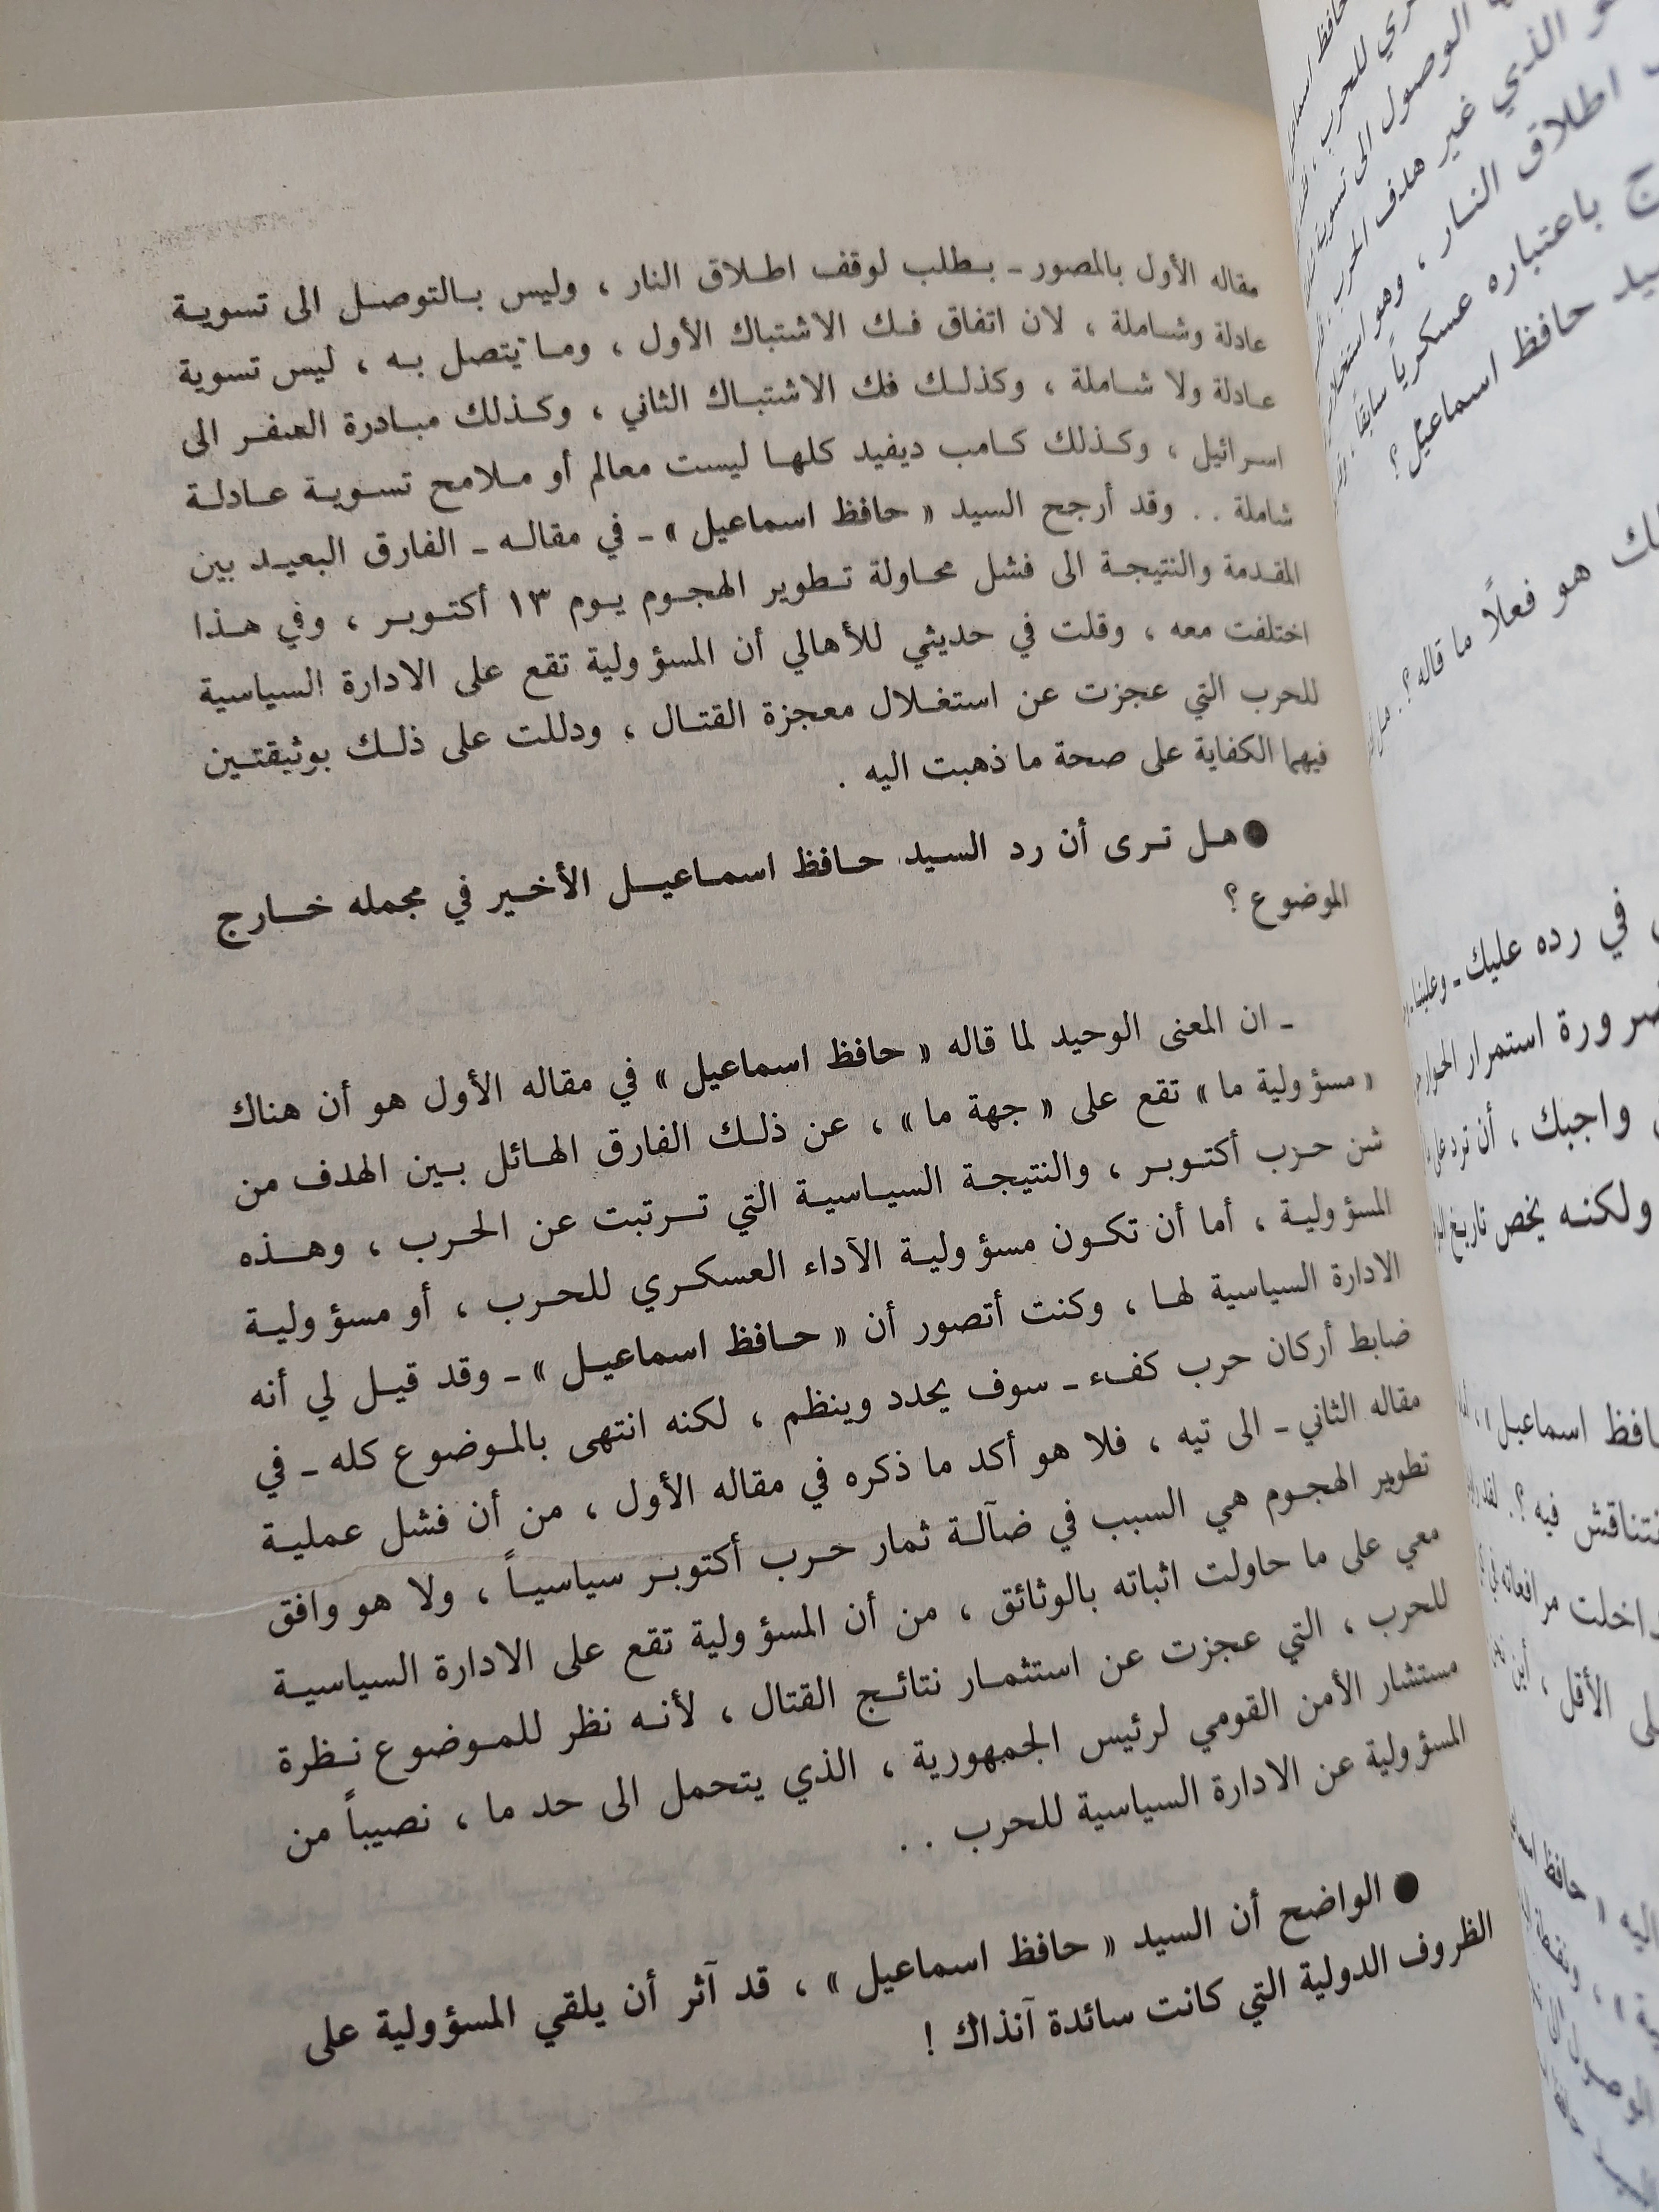 مقاله الأول بالمصور ـ بطلب لوقف اطلاق النار ، وليس بالتوصل الى تسوية
عادلة وشاملة ، لان اتفاق فك الاشتباك الأول ، وما يتصل به ، ليس تسوية
عادلة ولا شاملة ، وكذلك فك الاشتباك الثاني ، وكذلك مبادرة السفر الى
اسرائيل ، وكذلك كامب ديفيد كلها ليست معالم أو ملامح تسوية عادلة
شاملة . . وقد أرجح السيد « حافظ اسماعيل » ـ في مقاله ـ الفارق البعيد بين
المقدمة والنتيجة الى فشل محاولة تطوير الهجوم يوم ١٣ أكتوبر ، وفي هذا
اختلفت معه ، وقلت في حديثي للأهالي أن المسؤولية تقع على الادارة السياسية
للحرب التي عجزت عن استغلال معجزة القتال ، ودللت على ذلك بوثيقتين
فيهما الكفاية على صحة ما ذهبت اليه .
● هل ترى أن رد السيد حافظ اسماعيل الأخير في مجمله خارج
الموضوع ؟
ـ ان المعنى الوحيد لما قاله « حافظ اسماعيل » في مقاله الأول هو أن هناك
« مسؤولية ما » تقع على « جهة ما » ، عن ذلك الفارق الهائل بين الهدف من
شن حرب أكتوبر ، والنتيجة السياسية التي ترتبت عن الحرب ، وهذه
المسؤولية ، أما أن تكون مسؤولية الآداء العسكري للحرب ، أو مسؤولية
الادارة السياسية لها ، وكنت أتصور أن « حافظ اسماعيل » ـ وقد قيل لي أنه
ضابط أركان حرب كفء ـ سوف يحدد وينظم ، لكنه انتهى بالموضوع كله ـ في
مقاله الثاني ـ الى تيه ، فلا هو أكد ما ذكره في مقاله الأول ، من أن فشل عملية
تطوير الهجوم هي السبب في ضآلة ثمار حرب أكتوبر سياسياً ، ولا هو وافق
معي على ما حاولت اثباته بالوثائق ، من أن المسؤولية تقع على الادارة السياسية
للحرب ، التي عجزت عن استثمار نتائج القتال ، لأنه نظر للموضوع نظرة
مستشار الأمن القومي لرئيس الجمهورية ، الذي يتحمل الى حد ما ، نصيباً من
المسؤولية عن الادارة السياسية للحرب . .
● الواضح أن السيد « حافظ اسماعيل » ، قد آثر أن يلقي المسؤولية على
الظروف الدولية التي كانت سائدة آنذاك !
الوصول الى
الذي غير هدف الحرب
اطلاق النار ، وهو
باعتباره عسكرياً سابقاً
حافظ اسماعيل ؟
هو فعلاً ما قاله ؟
في رده عليك ـ وعلينا
ضرورة استمرار الحوار
واجبك ، أن ترد على
ولكنه يخص تاريخ
حافظ اسماعيل »
نتناقش فيه ؟
الأقل ، أين
اليه « حافظ